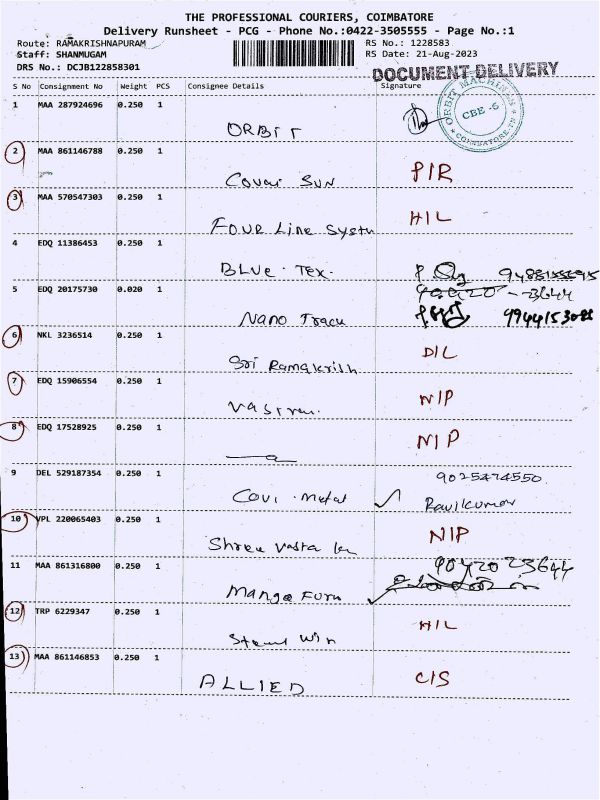 THE PROFESSIONAL COURIERS, COIMBATORE
Delivery Runsheet - PCG - Phone No.:0422-3505555 - Page No.:1
Route: RAMAKRISHNAPURAM
RS No.: 1228583
Staff: SHANMUGAM
RS Date: 21-Aug-2023
DRS No.: DCJB122858301
DOCUMENT DELIVERY
S No Consignment No Weight PCS Consignee Details Signature
ORBIT MACHINES
CBE-6
COIMBATORE
1 MAA 287924696 0.250 1
ORBIT
2 MAA 861146788 0.250 1
Covai Sun P/R
3 MAA 570547303 0.250 1
Four Line Systu H/L
4 EDQ 11386453 0.250 1
Blue. Tex.
5 EDQ 20175730 0.020 1
Nano Track 9944153088
6 NKL 3236514 0.250 1
Sri Ramakrish D/L
7 EDQ 15906554 0.250 1
N/P
8 EDQ 17528925 0.250 1
N/P
9 DEL 529187354 0.250 1
9025474550
Covi. Metal Ravikumar
10 VPL 220065403 0.250 1
Shree Vasta N/P
11 MAA 861316800 0.250 1
9042023644
Manga Furn
12 TRP 6229347 0.250 1
Win H/L
13 MAA 861146853 0.250 1
ALLIED C/S